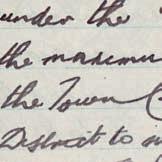 under the
the maximu
the Town C
District to a